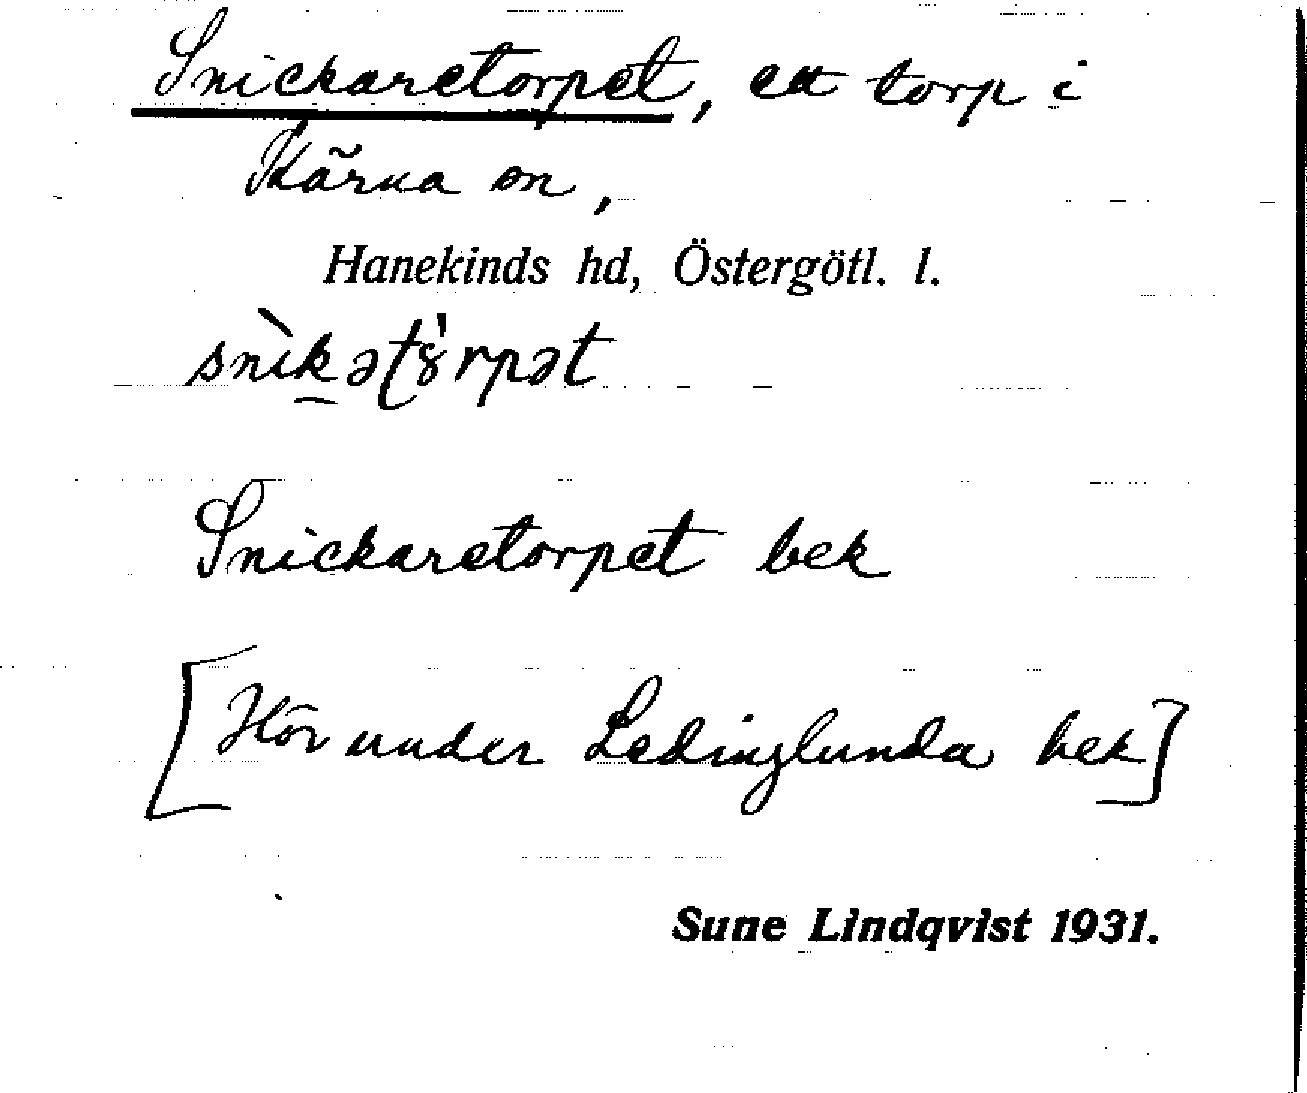 Snickaretorpet, ett torp i
Kärna sn,
Hanekinds hd, Östergötl. l.
snìkətȣ̀rpət
Snickaretorpet bek
[Hör under Ledinglunda bek]
Sune Lindqvist 1931.